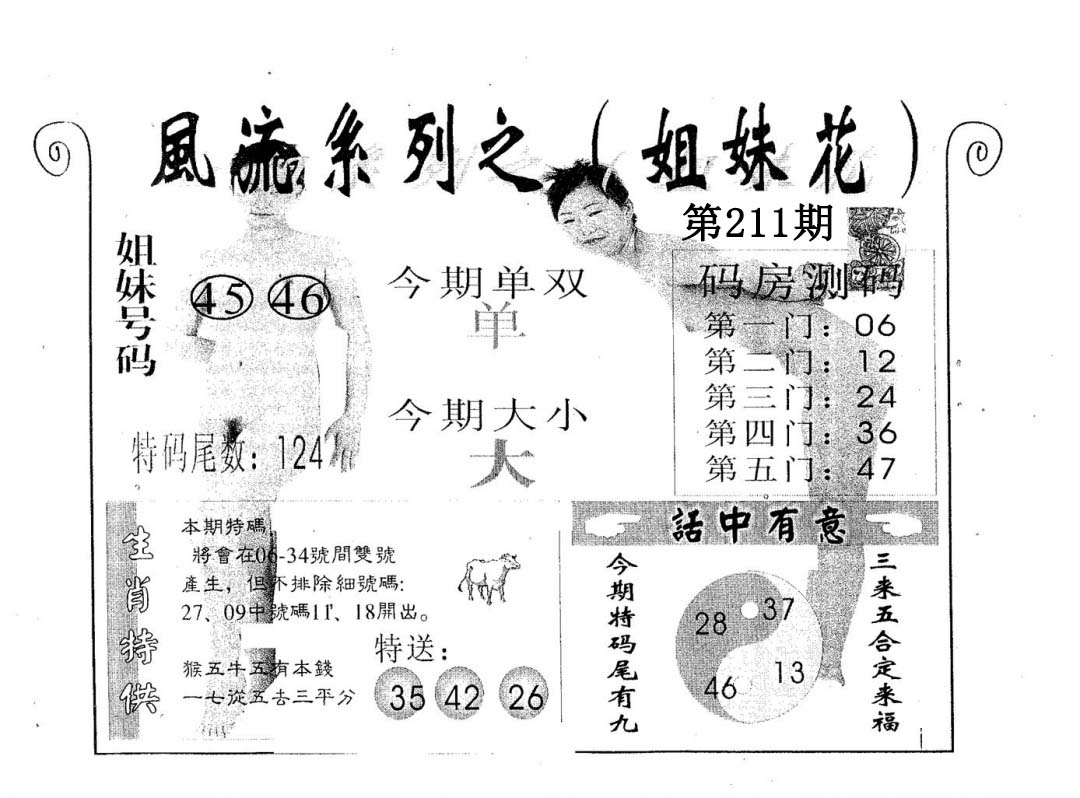 風流系列之（姐妹花）
第211期
姐妹号码
45 46
今期单双
单
今期大小
大
特码尾数：124
码房测码
第一门：06
第二门：12
第三门：24
第四门：36
第五门：47
生肖特供
本期特碼
將會在06-34號間雙號
產生，但不排除細號碼:
27、09中號碼11、18開出。
猴五牛五有本錢
一七從五去三平分
特送：
35 42 26
話中有意
今期特码尾有九
28 37
46 13
三来五合定来福